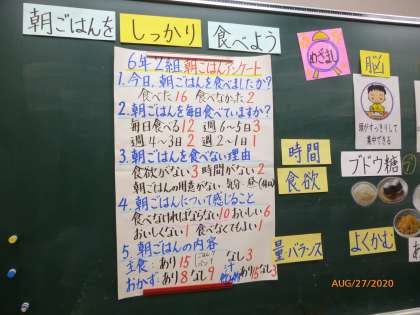 朝ごはんを しっかり 食べよう
6年2組 朝ごはんアンケート
1.今日、朝ごはんを食べましたか?
食べた 16 食べなかった 2
2.朝ごはんを毎日食べていますか?
毎日食べる 12 週6~5日 3
週4~3日 2 週2~1日 1
3.朝ごはんを食べない理由
食欲がない 3 時間がない 2
朝ごはんの用意がない 気分
4.朝ごはんについて感じること
食べなければならない 10 おいしい 6
おいしくない 1 食べなくてもよい 1
5.朝ごはんの内容
主食:あり 15 ごはん パン なし 3
おかず:あり 8 なし 9 汁 あり 15 なし 3
めざまし
脳
頭がすっきりして
集中できる
時間
食欲
ブドウ糖
量・バランス
よくかむ
AUG/27/2020